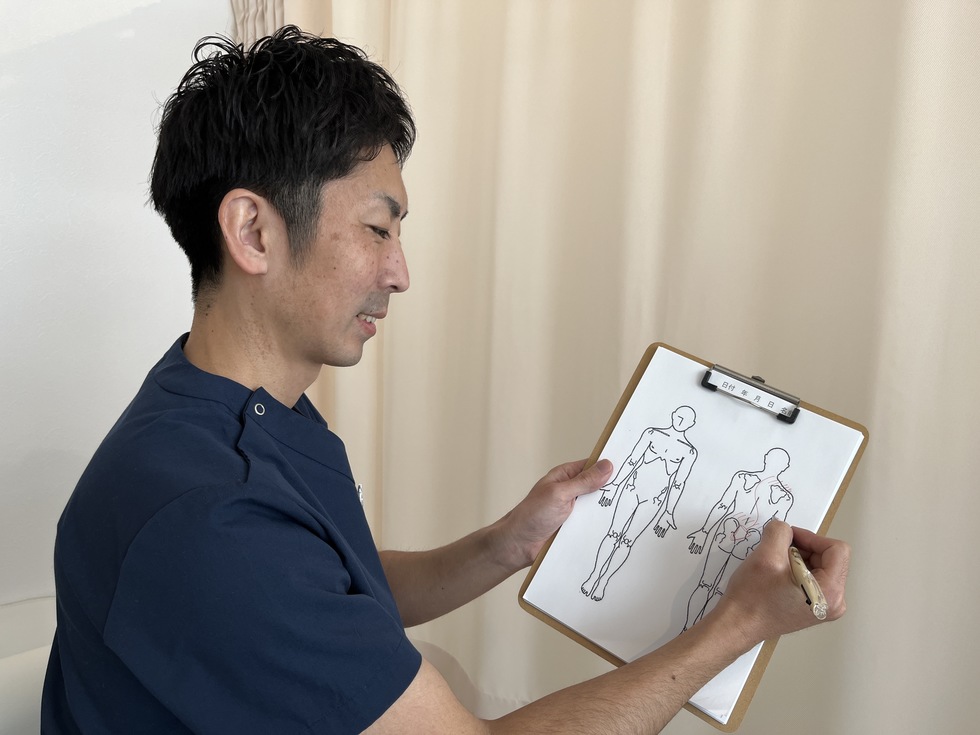 日付 年 月 日